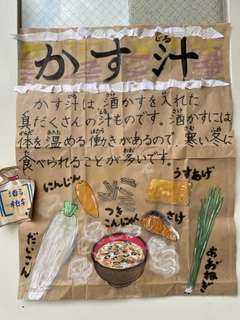 かす汁
じる
かす汁は、酒かすを入れた
具だくさんの汁ものです。酒かすには
体を温める働きがあるので、寒い冬に
食べられることが多いです。
にんじん
つき
こんにゃく
うすあげ
さけ
だいこん
あおねぎ
酒粕